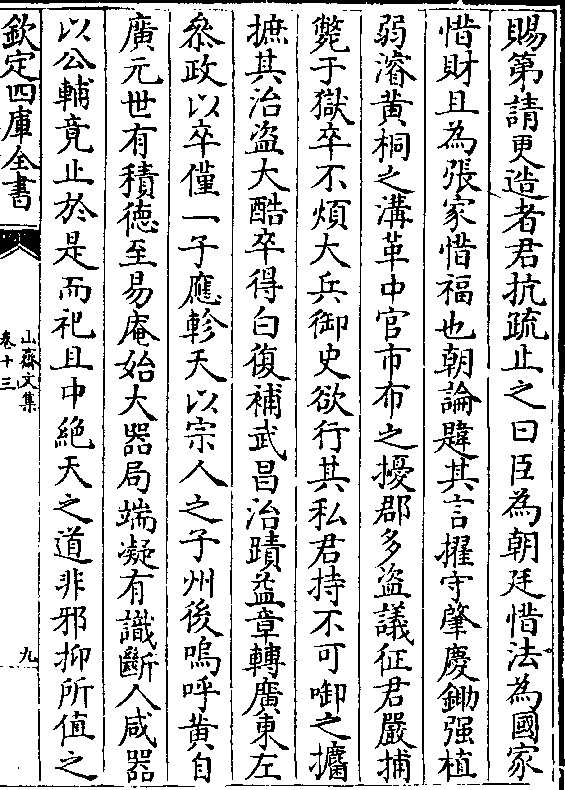 賜第請更造者君抗疏止之曰臣為朝廷惜法為國家
惜財且為張家惜福也朝論韙其言擢守肇慶鋤强植
弱濬黄桐之溝革中官市布之擾郡多盗議征君嚴捕
斃于獄卒不煩大兵御史欲行其私君持不可啣之攟
摭其治盗大酷卒得白復補武昌治蹟益章轉廣東左
叅政以卒僅一子應軫天以宗人之子州後嗚呼黄自
廣元世有積德至易庵始大器局端凝有識斷人咸器
以公輔竟止於是而祀且中絶天之道非邪抑所值之
欽定四庫全書
山齋文集
卷十三
九